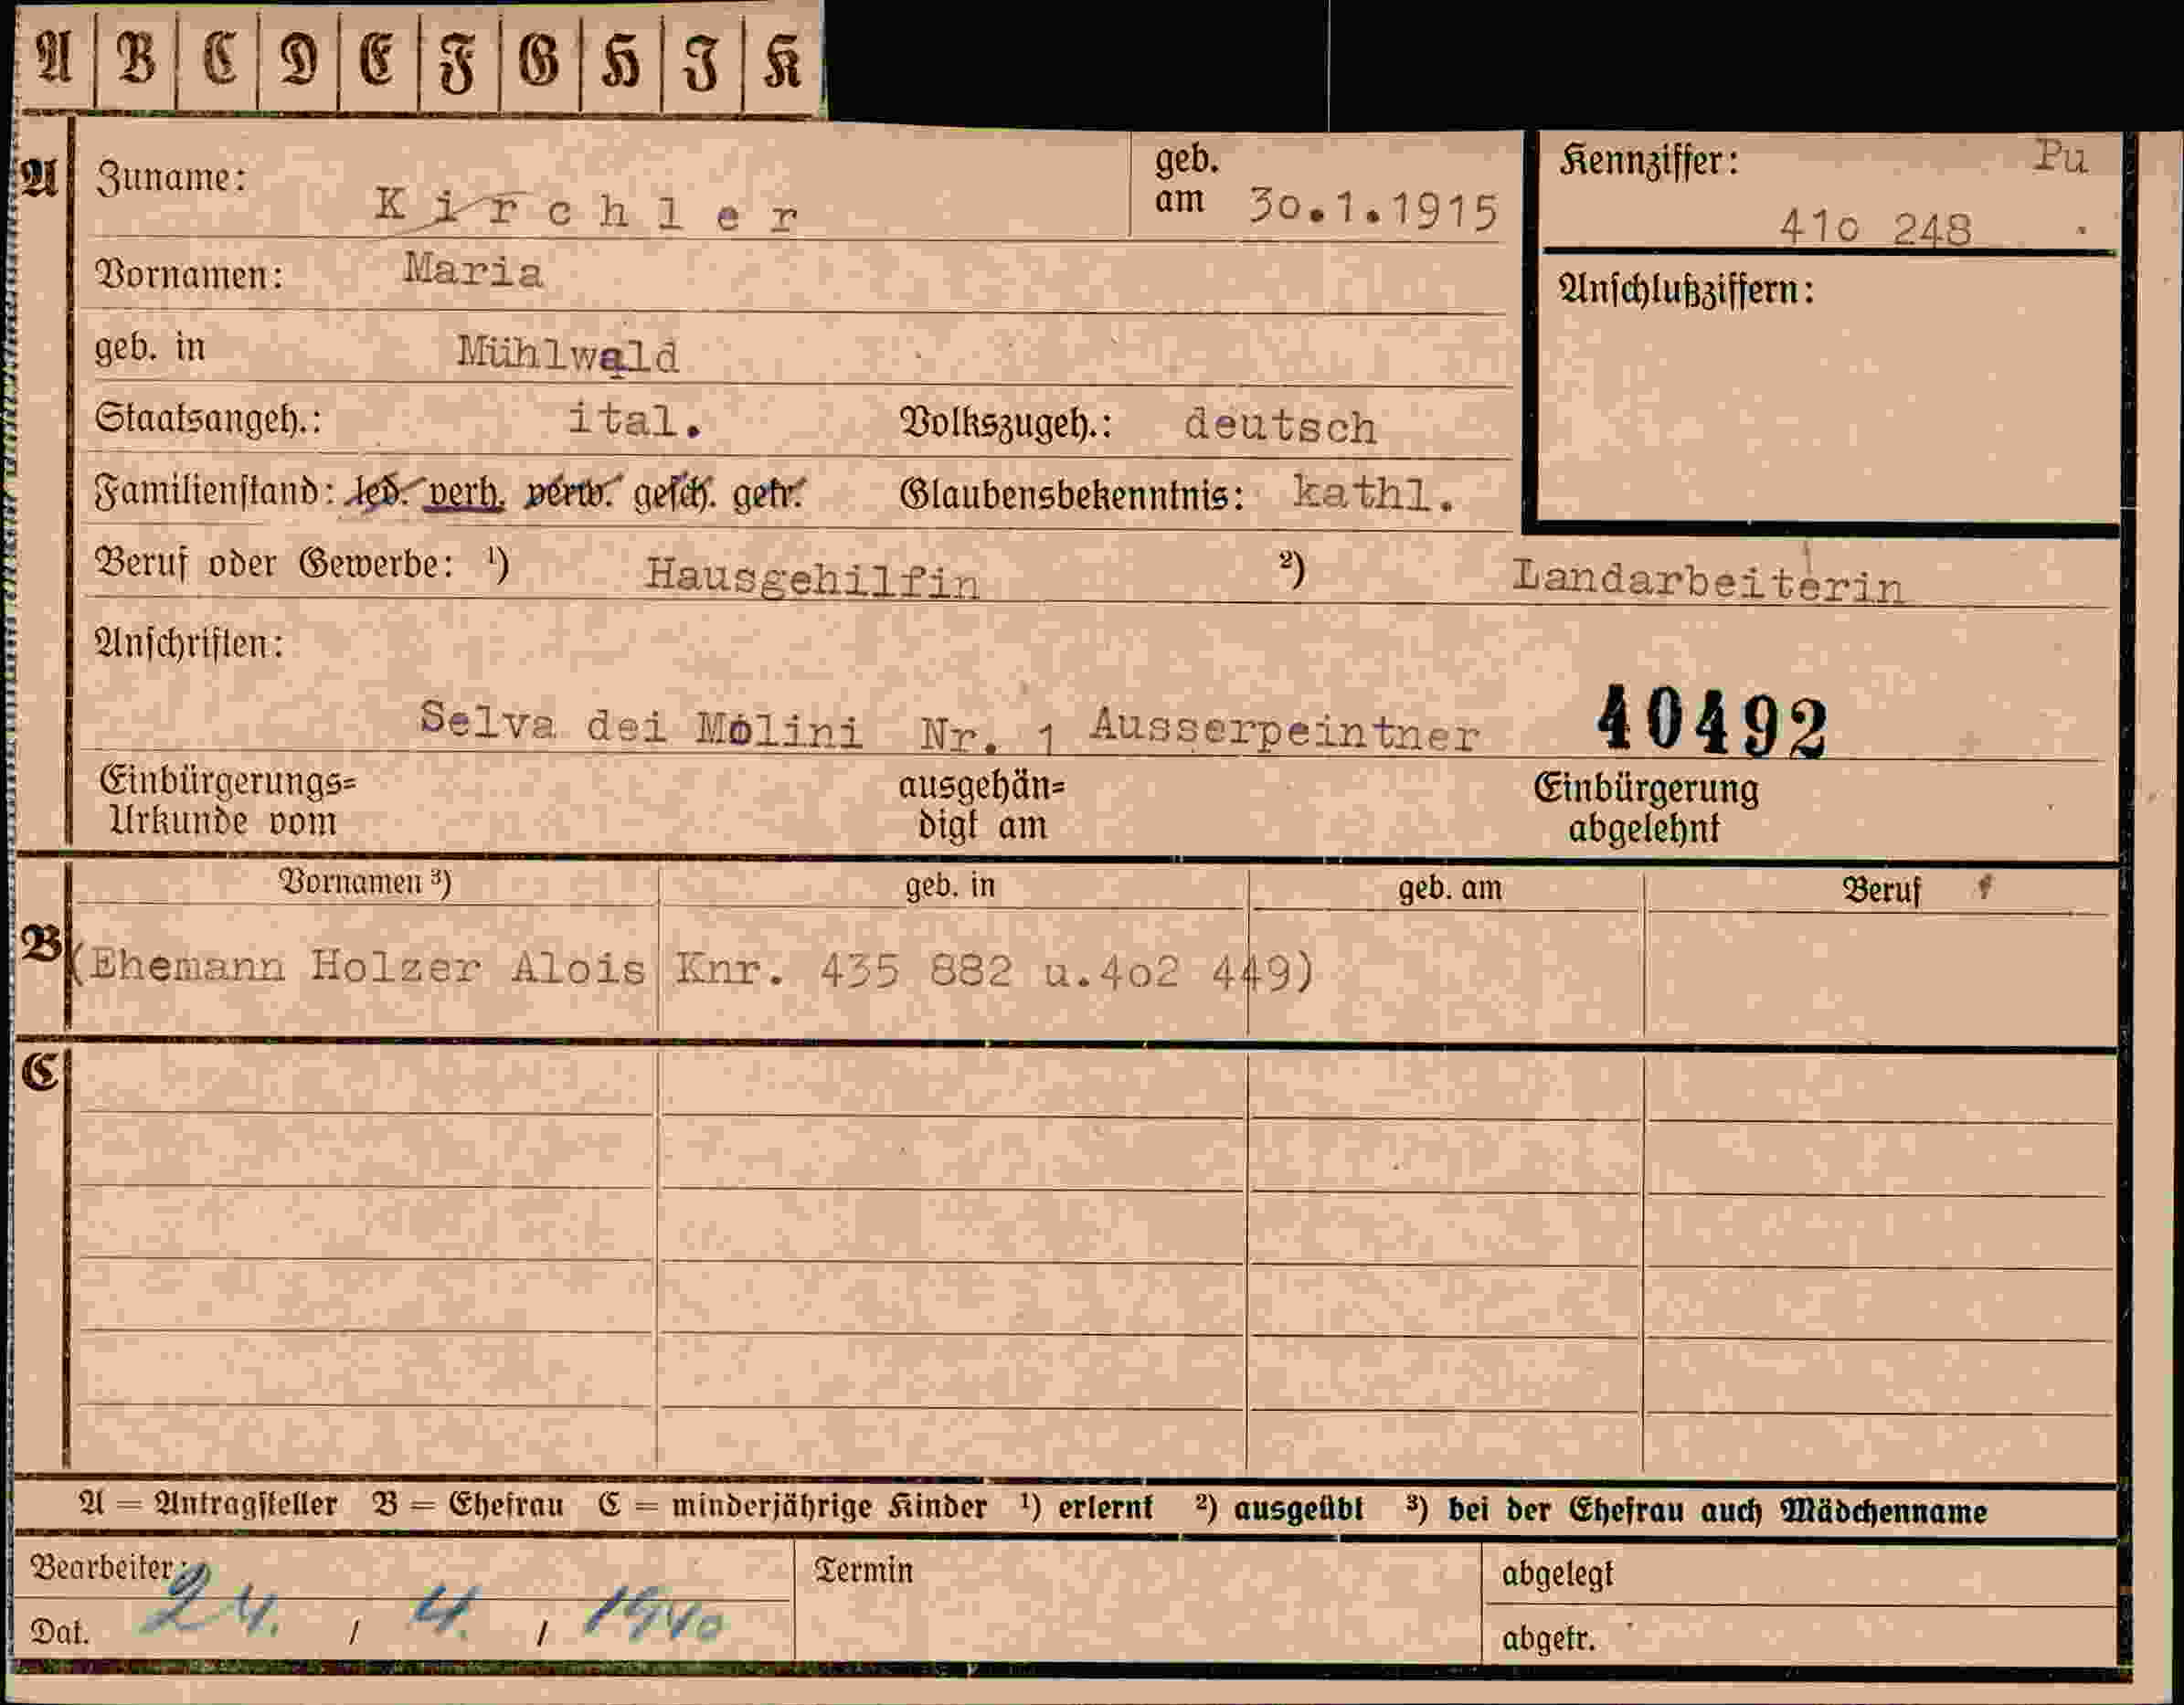 A B C D E F G H I K
A Zuname: Kirchler geb. am 30.1.1915 Kennziffer: Pu 41o 248
Vornamen: Maria Anschlußziffern:
geb. in Mühlwald
Staatsangeh.: ital. Volkszugeh.: deutsch
Familienstand: led. verh. verw. gesch. getr. Glaubensbekenntnis: kathl.
Beruf oder Gewerbe: ¹) Hausgehilfin ²) Landarbeiterin
Anschriften:
Selva dei Molini Nr. 1 Ausserpeintner 40492
Einbürgerungs= ausgehän= Einbürgerung
Urkunde vom digt am abgelehnt
Vornamen ³) geb. in geb. am Beruf
B (Ehemann Holzer Alois Knr. 435 882 u.4o2 449)
C
A = Antragsteller B = Ehefrau C = minderjährige Kinder ¹) erlernt ²) ausgeübt ³) bei der Ehefrau auch Mädchenname
Bearbeiter: Termin abgelegt
Dat. 24. / 4. / 1940 abgetr.